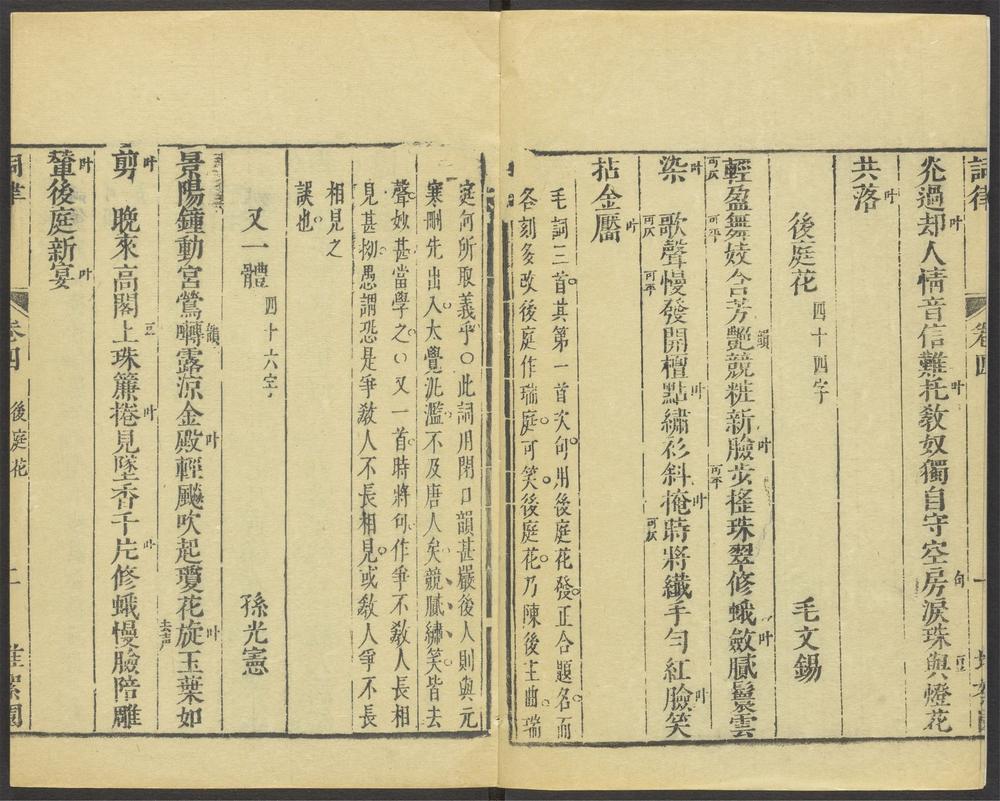 詞律 卷四
光過却人情音信難托敎奴獨自守空房淚珠與燈花
叶 叶 句 豆
共落
叶
後庭花 四十四字 毛文錫
輕盈舞妓含芳艷競粧新臉步搖珠翠修蛾斂膩鬟雲
可仄 可平 韻 叶 可平 叶
染 歌聲慢發開檀點繡衫斜掩時將纖手勻紅臉笑
叶 可仄 可平 叶 叶 可仄 叶
拈金靨
叶
毛詞三首其第一首次句用後庭花發正合題名而
各刻多改後庭作瑞庭可笑後庭花乃陳後主曲瑞
庭何所取義乎○此詞用閉口韻甚嚴後人則與元
寒刪先出入太覺泚濫不及唐人矣競膩繡笑皆去
聲妙甚當學之○又一首時將句作爭不敎人長相
見甚拗愚謂恐是爭敎人不長相見或敎人爭不長
相見之
誤也
又一體 四十六字 孫光憲
景陽鐘動宮鶯囀露涼金殿輕飈吹起瓊花旋玉葉如
韻 叶 叶 去声
剪 晚來高閣上珠簾捲見墜香千片修蛾慢臉陪雕
叶 豆 叶 叶
輦後庭新宴
叶 叶
詞律 卷四 後庭花 二 堆絮園